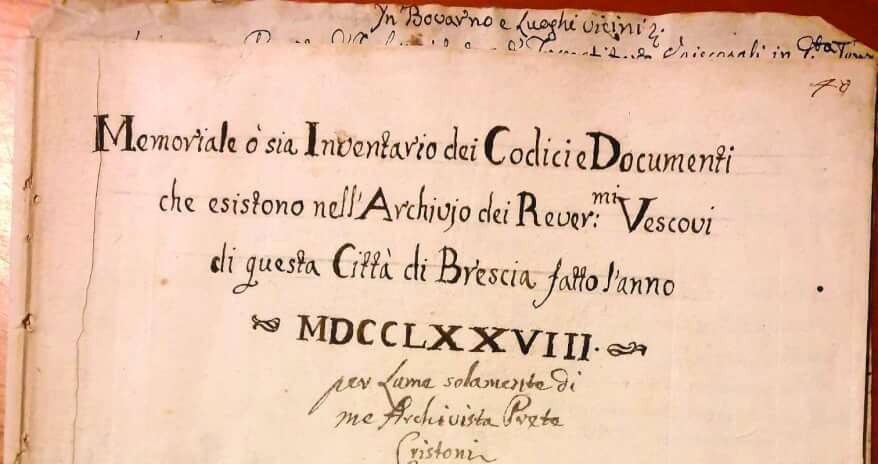 In Bovarno e Lueghi vicini
Vescovali in
48
Memoriale ò sia Inventario dei Codici e Documenti
che esistono nell'Archivjo dei Rever:mi Vescovi
di questa Città di Brescia fatto l'anno
MDCCLXXVIII.
per Lume solamente di
me Archivista Prete
Cristoni